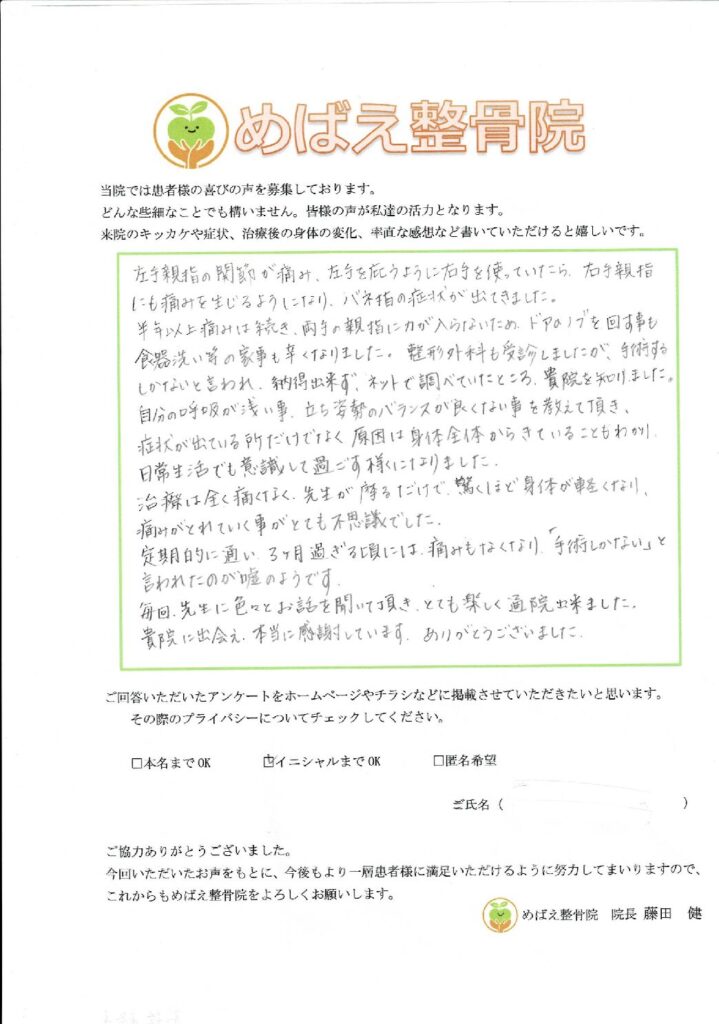 めばえ整骨院
当院では患者様の喜びの声を募集しております。
どんな些細なことでも構いません。皆様の声が私達の活力となります。
来院のキッカケや症状、治療後の身体の変化、率直な感想など書いていただけると嬉しいです。
左手親指の関節が痛み、左手を庇うように右手を使っていたら、右手親指
にも痛みを生じるようになり、バネ指の症状が出てきました。
半年以上痛みは続き、両手の親指に力が入らないため、ドアのノブを回す事も
食器洗い等の家事も辛くなりました。整形外科も受診しましたが、手術する
しかないと言われ、納得出来ず、ネットで調べていたところ、貴院を知りました。
自分の呼吸が浅い事、立ち姿勢のバランスが良くない事を教えて頂き、
症状が出ている所だけでなく、原因は身体全体からきていることもわかり、
日常生活でも意識して過ごす様になりました。
治療は全く痛くなく、先生が摩るだけで、驚くほど身体が軽くなり、
痛みがとれていく事がとても不思議でした。
定期的に通い、3ヶ月過ぎる頃には、痛みもなくなり、「手術しかない」と
言われたのが嘘のようです。
毎回、先生に色々とお話を聞いて頂き、とても楽しく通院出来ました。
貴院に出会え、本当に感謝しています。ありがとうございました。
ご回答いただいたアンケートをホームページやチラシなどに掲載させていただきたいと思います。
その際のプライバシーについてチェックしてください。
□本名まで OK ☑イニシャルまで OK □匿名希望
ご氏名（ ）
ご協力ありがとうございました。
今回いただいたお声をもとに、今後もより一層患者様に満足いただけるように努力してまいりますので、
これからもめばえ整骨院をよろしくお願いします。
めばえ整骨院 院長 藤田 健